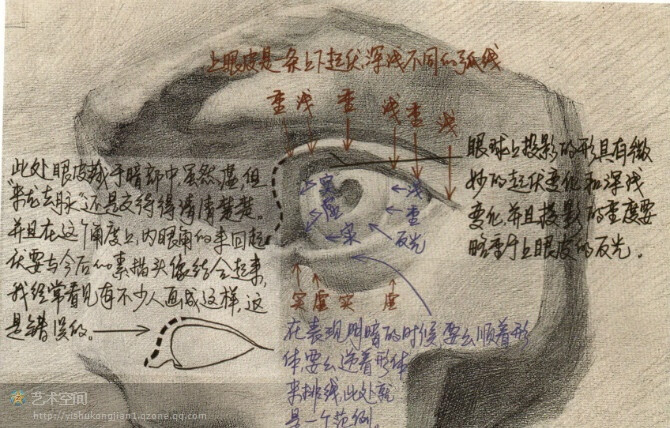 上眼皮是一条上下起伏深浅不同的弧线
重 浅 重 浅 重 浅
此处眼皮我于暗部中虽然虚,但
"来龙去脉"还是交待得清清楚楚。
并且在这个角度上,内眼角的来回起
伏要与今后的素描头像结合起来,
我经常看见有不少人画成这样,这
是错误的。
眼球上投影的形具有微
妙的起伏变化和深浅
变化,并且投影的重度要
略重于上眼皮的反光。
实 浅
虚 重
实 反光
实 虚 实 虚
在表现明暗的时候要么顺着形
体,要么逆着形体
来排线,此处就
是一个范例。
艺术空间
http://yishukongjian1.qzone.qq.com